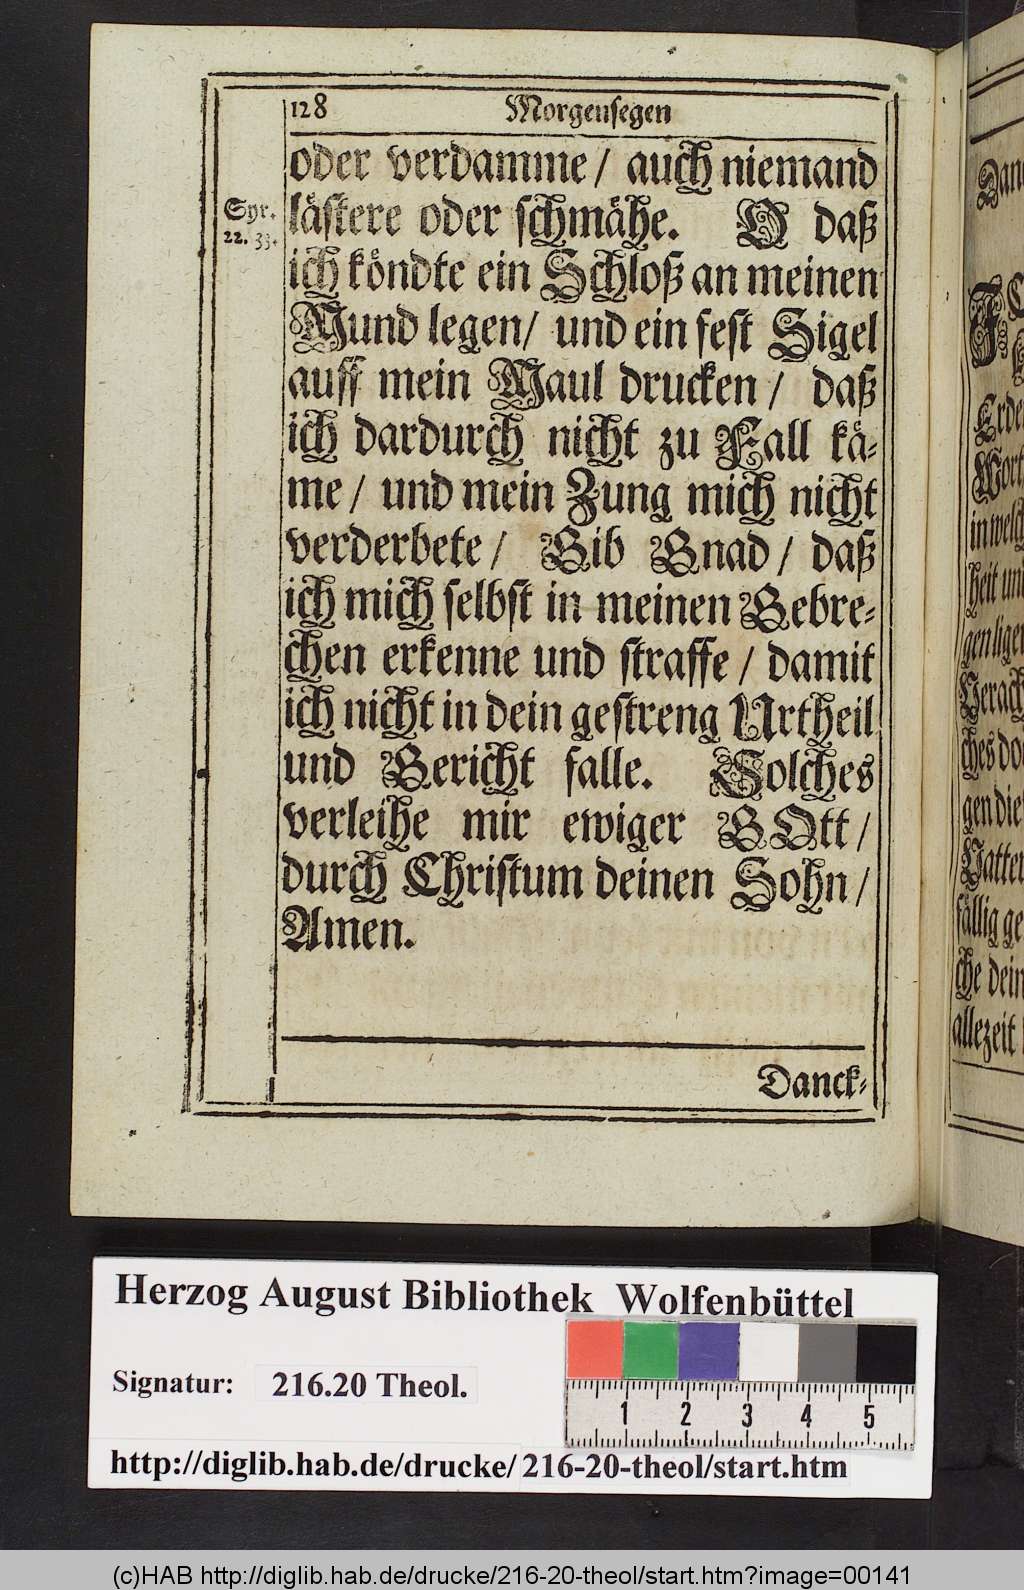 128 Morgensegen
oder verdamme / auch niemand
Syr.
22. 33.
lästere oder schmähe. O daß
ich köndte ein Schloß an meinen
Mund legen / und ein fest Sigel
auff mein Maul drucken / daß
ich dardurch nicht zu Fall kä-
me / und mein Zung mich nicht
verderbete / Gib Gnad / daß
ich mich selbst in meinen Gebre-
chen erkenne und straffe / damit
ich nicht in dein gestreng Urtheil
und Gericht falle. Solches
verleihe mir ewiger GOtt /
durch Christum deinen Sohn /
Amen.
Danck-
Erde
Wort
in welch
heit un
gen lige
Verach
ches do
gen die
Vatter
fällig ge
che dein
allezeit
Herzog August Bibliothek Wolfenbüttel
Signatur: 216.20 Theol.
1 2 3 4 5
http://diglib.hab.de/drucke/216-20-theol/start.htm
(c)HAB http://diglib.hab.de/drucke/216-20-theol/start.htm?image=00141